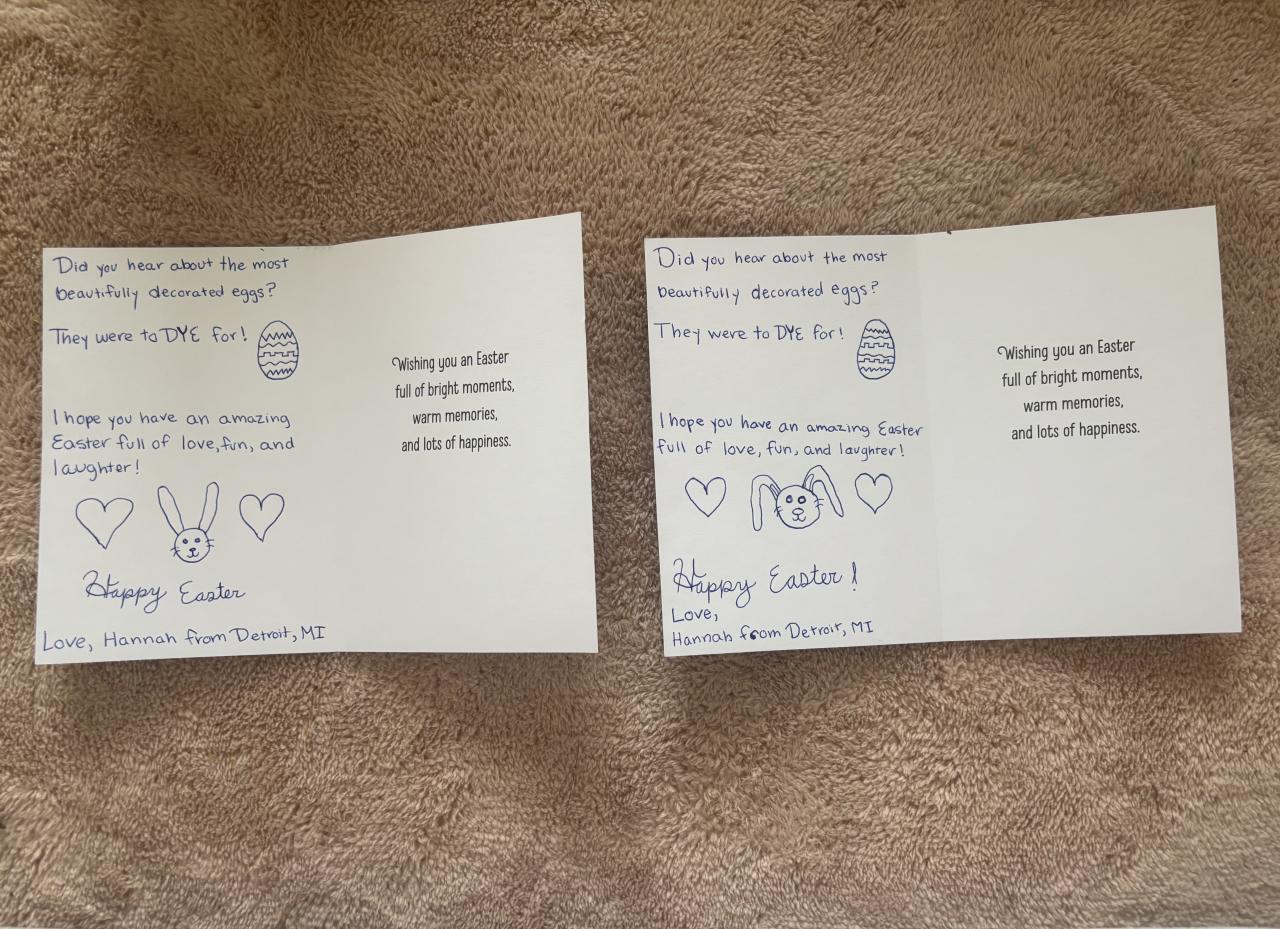 Did you hear about the most
beautifully decorated eggs?
They were to DYE for!
I hope you have an amazing
Easter full of love, fun, and
laughter!
Happy Easter
Love, Hannah from Detroit, MI
Wishing you an Easter
full of bright moments,
warm memories,
and lots of happiness.
Did you hear about the most
beautifully decorated eggs?
They were to DYE for!
I hope you have an amazing Easter
full of love, fun, and laughter!
Happy Easter!
Love,
Hannah from Detroit, MI
Wishing you an Easter
full of bright moments,
warm memories,
and lots of happiness.